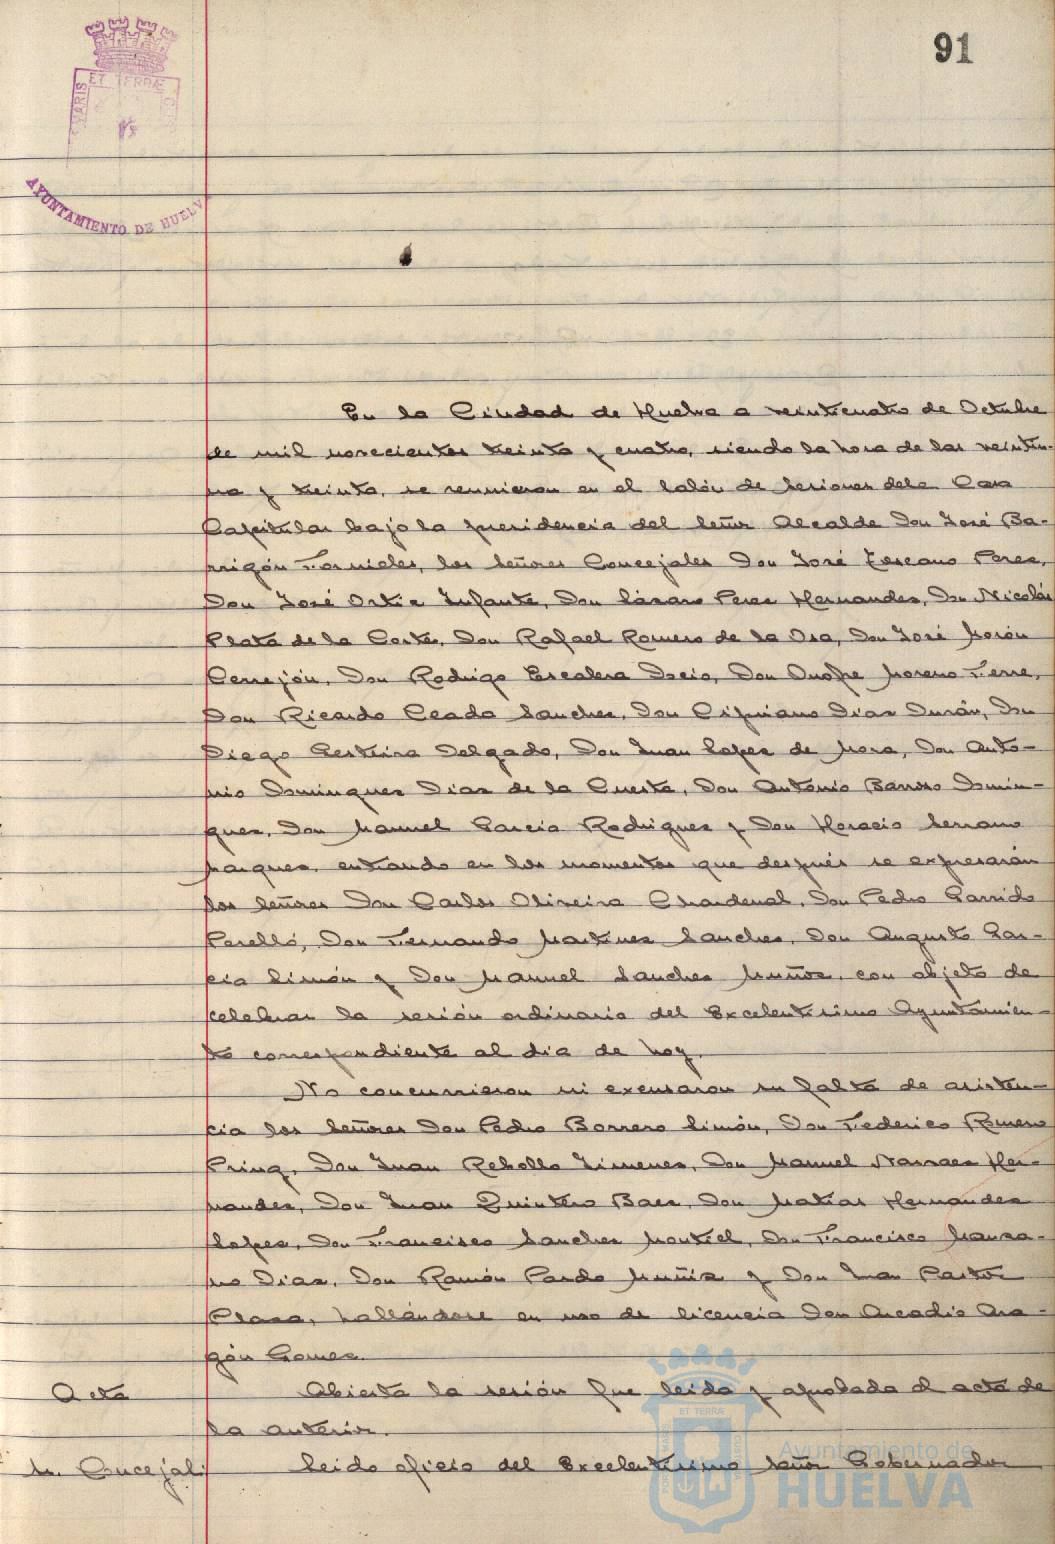 91
ET TERRÆ
MARIS
AYUNTAMIENTO DE HUELVA
En la Ciudad de Huelva a veinticuatro de Octubre
de mil novecientos treinta y cuatro, siendo la hora de las veintiu-
na y treinta, se reunieron en el salón de sesiones dela Casa
Capitular bajo la presidencia del Señor Alcalde Don José Ba-
rrigón Fornieles, los Señores Concejales Don José Toscano Perez,
Don José Ortiz Infante, Don Lázaro Perez Hernandez, Don Nicolás
Plata de la Corte, Don Rafael Romero de la Osa, Don José Morón
Cerrejón, Don Rodrigo Escalera Docio, Don Onofre Moreno Ferre,
Don Ricardo Ceada Sanchez, Don Cipriano Diaz Durán, Don
Diego Gesteira Delgado, Don Juan Lopez de Mora, Don Anto-
nio Dominguez Diaz de la Cuesta, Don Antonio Barroso Domin-
guez, Don Manuel Garcia Rodriguez y Don Horacio Serrano
Marquez, entrando en los momentos que después se expresarán
los Señores Don Carlos Oliveira Chardenal, Don Pedro Garrido
Perelló, Don Fernando Martinez Sanchez, Don Augusto Gar-
cia Simón y Don Manuel Sanchez Muñoz, con objeto de
celebrar la sesión ordinaria del Excelentisimo Ayuntamien-
to correspondiente al dia de hoy.
No concurrieron ni excusaron su falta de asisten-
cia los Señores Don Pedro Borrero Limón, Don Federico Romero
Prinq, Don Juan Rebollo Jimenez, Don Manuel Narvaez Her-
nandez, Don Juan Quintero Baez, Don Matias Hernandez
Lopez, Don Francisco Sanchez Montiel, Don Francisco Manza-
no Diaz, Don Ramón Pardo Muñiz y Don Juan Pastor
Plaza, hallándose en uso de licencia Don Arcadio Ara-
gón Gomez.
Acta Abierta la sesión fue leida y aprobada el acta de
la anterior.
Concejal: Leido oficio del Excelentisimo Señor Gobernador
ET TERRÆ
Ayuntamiento de
HUELVA